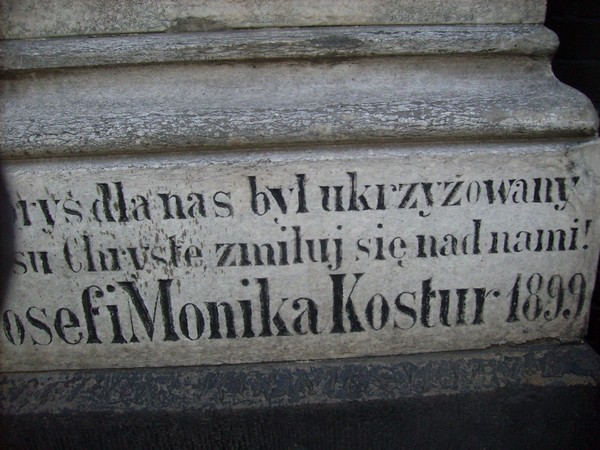 ryś dla nas był ukrzyżowany
su Chryste zmiłuj się nad nami!
osef i Monika Kostur 1899